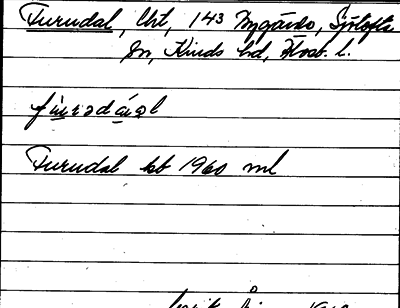 Furudal, lht, 143 Nygårdo, Sjötofta
sn, Kinds hd, Älvsb. l.
fùrɘdáɘl
Furudal kb 1960 ml